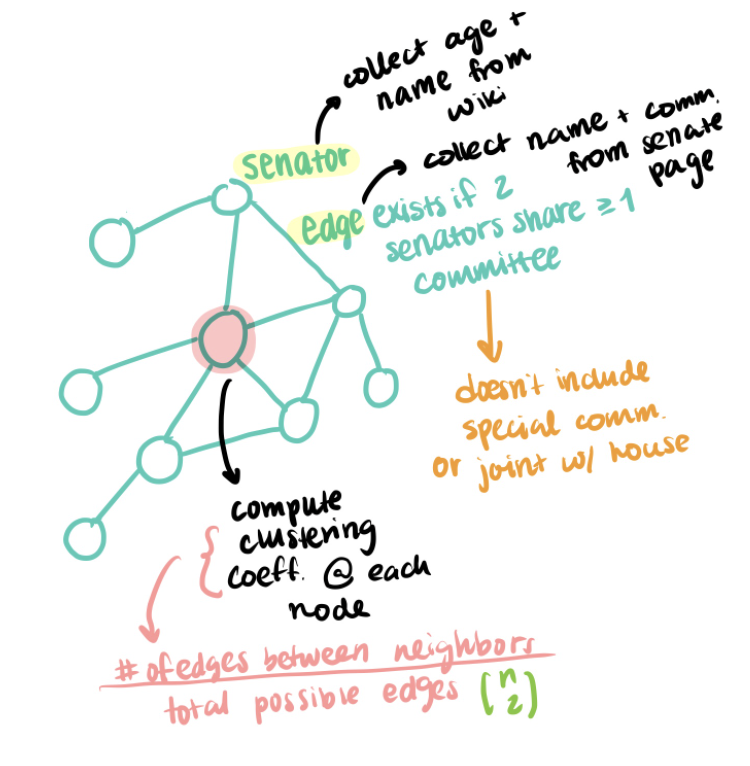 collect age +
name from
wiki
senator
collect name + comm.
from senate
page
edge exists if 2
senators share ≥ 1
committee
doesn't include
special comm.
or joint w/ house
compute
clustering
coeff. @ each
node
# of edges between neighbors
total possible edges (n 2)